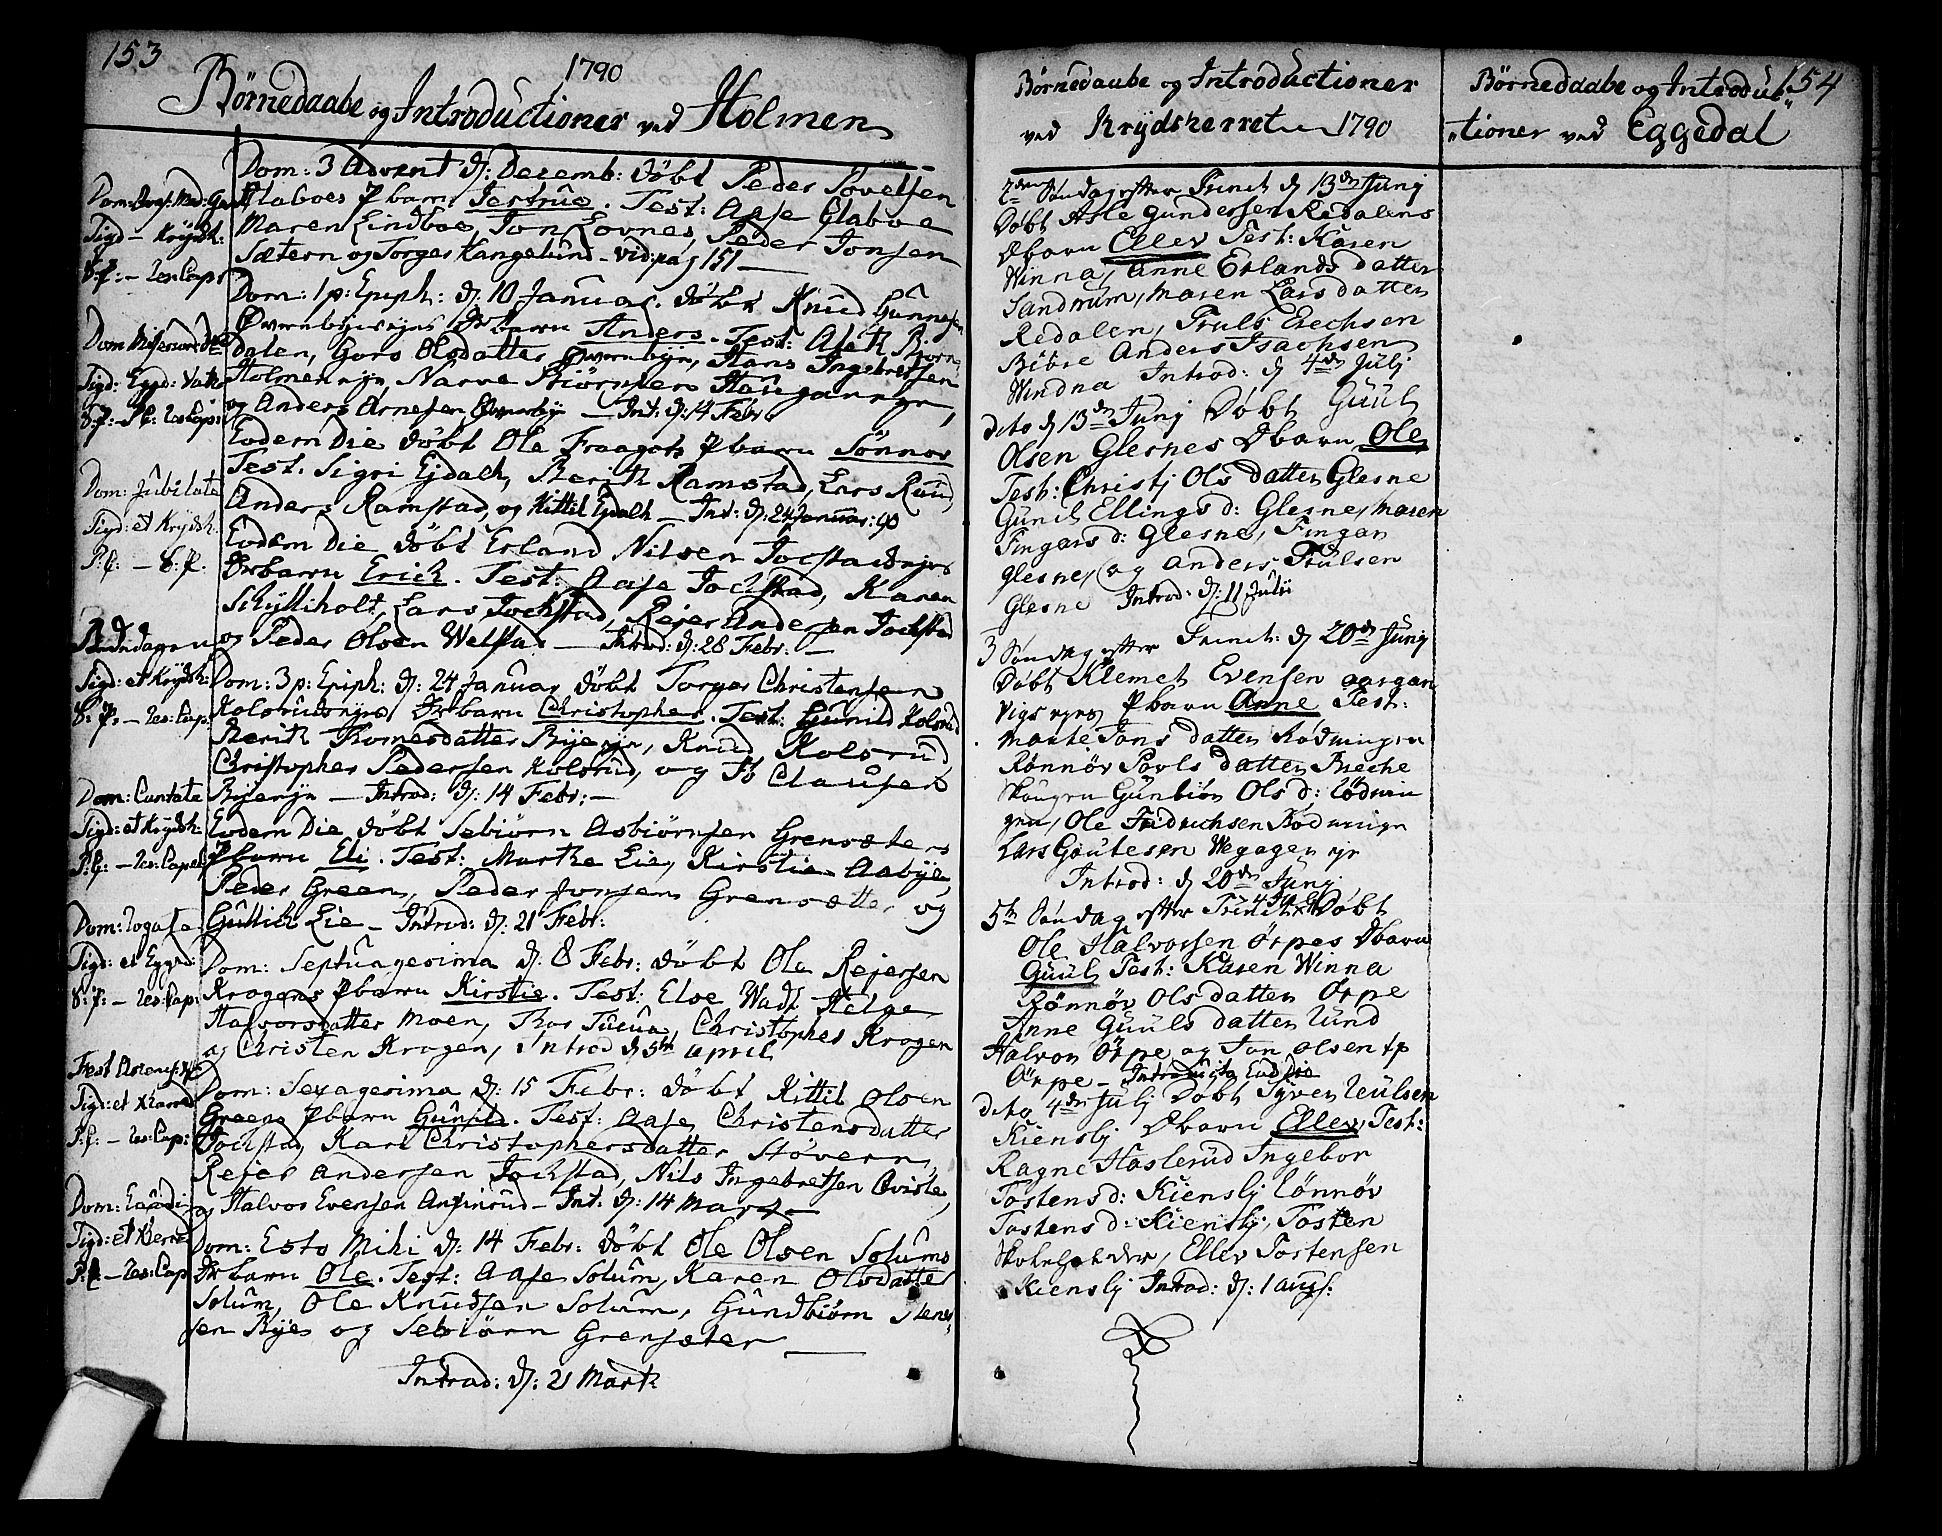 153
1790
Børnedaabe og Introductioner ved Holmen
Dom: 3 Advent d: Decemb: døbt Peder Povelsen
Glaboes Pbarn Jertrue. Test: Aase Glaboe
Maren Lindboe, Jon Lovnes, Peder Jonsen
Sætern og Torger Kangelund - vid: pag 151
Dom: 1 p: Epiph: d: 10 Januar. døbt Knud Gunnesen
Øvernbyeseyes Drbarn Anders. Test: Aleth Biørn
dalen, Goro Olsdatter Øvernbye, Hans Ingebretsen
Holmen eye, Narve Biørnsen Haugann eye,
og Anders Arnesen Øvernbye - Int: d: 14 Febr.
Eodem Die døbt Ole Fraagots Pbarn Sønnov
Test. Sigri Ejdalh, Berith Ramstad, Lars Ruud
Anders Ramstad, og Kittil Ejdalh - Int: d: 24 Januar: 90
Eodem Die døbt Erland Nilsen Jocstadeyes
Drbarn Erich. Test: Aase Jochstad, Karen
Schylliholt, Lars Jochstad, Rejer Andersen Jochstad
og Peder Olsen Welstad - Introd: d: 28 Febr: -
Dom: 3 p: Epiph: d: 24 Januar døbt Torger Christensen
Kolsrudseyes Drbarn Christopher. Test: Gunild Kolsrud
Berith Thomesdatter Byeeye, Knud Kolsrud
Christopher Pedersen Kolsrud, og Ib Clausen
Byeeye - Introd: d: 14 Febr: -
Eodem Die døbt Sebiørn Asbiørnsen Grensæters
Pbarn Eli. Test: Marthe Lie, Kirstie Aabye,
Peder Green, Peder Jonsen Grensætter og
Gullich Lie - Introd: d: 21 Febr:
Dom: Septuagesima d: 8 Febr: døbt Ole Rejersen
Kragens Pbarn Kirstie. Test: Eloe Wadt Helge
Halvorsdatter Moen, Thor Tueua, Christopher Kragen
og Christen Kragen, Introd d 5te April
Dom: Sexagesima d: 15 Febr: døbt Kittil Olsen
Greens Pbarn Gunild. Test: Aase Christensdatter
Jochstad, Kari Christophersdatter Støvern,
Rejer Andersen Jochstad, Nils Ingebretsen Qviste,
og Halvor Evensen Ansinrud - Int: d: 14 Marts -
Dom: Esto Mihi d: 14 Febr: døbt Ole Olsen Solums
Drbarn Ole. Test: Aase Solum, Karen Olsdatter
Solum, Ole Knudsen Solum, Gundbiørn Stens-
sen Bye og Sebiørn Grensæter
Introd: d: 21 Marti
Sigd - Krydsh:
S: P: - Res: Cap:
Sigd: Eggd:
Dom: Jubilate
Sigd: et Krydsh.
P: C: - S: P.
Sigd: et Krydsh:
S: P: - Res: Cap:
Dom: Cantate
Sigd: et Krydsh:
P: C: - Res: Capel:
Dom: Rogate
Sigd: et Eggd:
S: P: - Res: Cap:
Sigd: et
P: C: - Res: Cap:
Dom: Exaudi
Sigd: et
P: C: - Res: Cap
Børnedaabe og Introductioner
ved Krydsherret 1790
2den Søndag efter Trinit d 13de Junj
Døbt Asle Gundersen Redalens
Dbarn Ellev Test: Karen
Winna, Anne Erlands datter
Sandrum, Maren Lars datter
Redalen, Truls Erechsen
Bibre Anders Isachsen
Windna Introd: d 4de Julj
dito d 13de Junj Døbt Guul
Olsen Glesnes Dbarn Ole
Test: Christj Ols datter Glesne
Gunil Ellings d: Glesne, Maren
Fingars d: Glesne, Fingar
Glesne, og Anders Trulsen
Glesne Introd: d: 11 Julii
3 Søndag efter Trinit: d 20de Junj
Døbt Klemet Evensen Aargar
Vigs eyes Pbarn Anne Test:
Marte Jons datter Rødningen
Rønnøv Povls datter Breche
Skougen Gunbiør Ols d: Rødnin
gen, Ole Fridrichsen Rødningen
Lars Gautesen Wegagen eye
Introd: d 20de Junj
5te Søndag efter Trinit. Døbt
Ole Halvorsen Ørpes Dbarn
Guul Test: Karen Winna
Rønnøv Ols datter Ørpe
Anne Guuls datter Lund
Halvor Ørpe og Jon Olsen
Ørpe - Introducta Eod Die
dito 4de Julj Døbt Syver Uulsen
Kienslj Dbarn Ellev, Test:
Ragne Haslerud Ingebor
Tostens d: Kienslj Rønnøv
Tostens d: Kienslj, Tosten
Ellev Tostensen
Kienslj Introd: d: 1 Augs:
154
Børnedaabe og Introduc-
tioner ved Eggedal